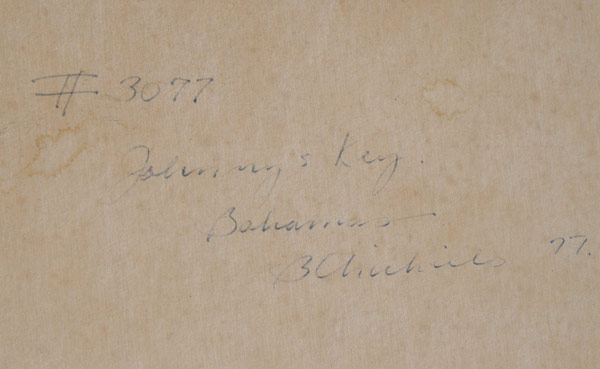 # 3077
Johnny's Key.
Bahamas
77.